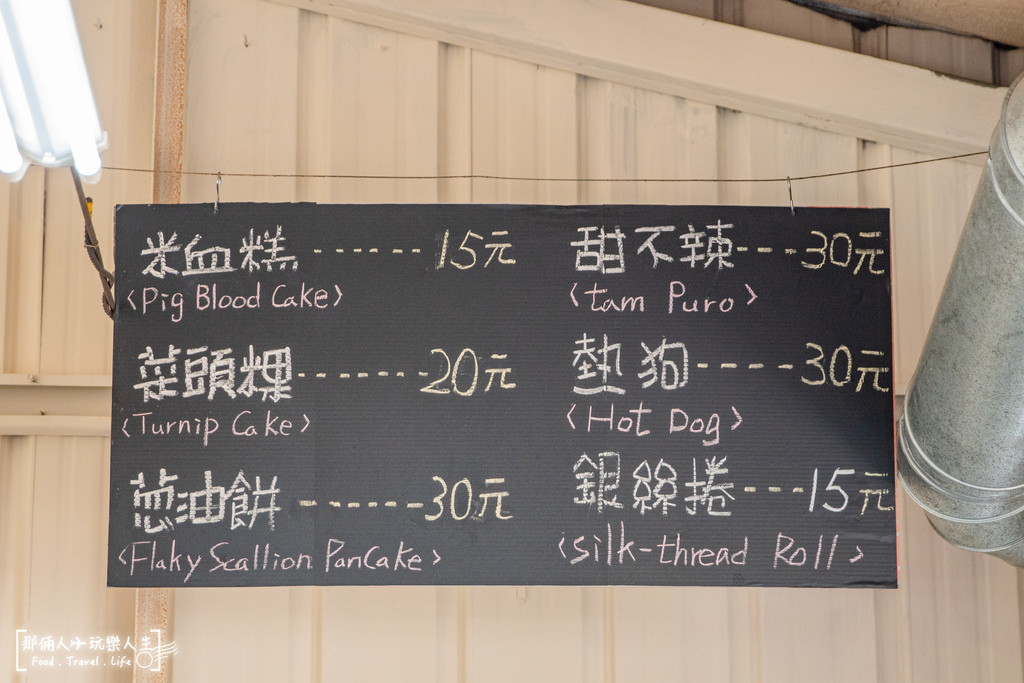 米血糕 ------ 15元
<Pig Blood Cake>
菜頭粿 ------- 20元
<Turnip Cake>
蔥油餅 ------- 30元
<Flaky Scallion PanCake>
甜不辣 --- 30元
<tam Puro>
熱狗 ---- 30元
<Hot Dog>
銀絲捲 --- 15元
<silk-thread Roll>
那倆人玩樂人生
Food . Travel . Life